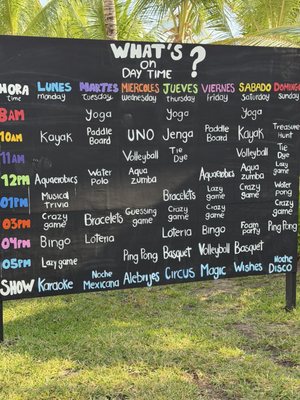 WHAT'S ON ?
DAY TIME
HORA LUNES MARTES MIERCOLES JUEVES VIERNES SABADO DOMINGO
Time monday Tuesday wednesday Thursday Friday Saturday Sunday
8AM Yoga Yoga Yoga
10AM Kayak Paddle Board UNO Jenga Paddle Board Kayak Treasure Hunt
11AM Volleyball Tie Dye Volleyball Tie Dye
12PM Aquarobics Water Polo Aqua zumba Aquarobics Aqua zumba Lazy game
01PM Musical Trivia Bracelets Lazy game Crazy game Water Pong
03PM Crazy game Bracelets Guessing game Crazy game Crazy game Crazy game
04PM Bingo Loteria Loteria Bingo Foam party Ping Pong
05PM Lazy game Ping Pong Basquet Volleyball Basquet
SHOW Karaoke Noche Mexicana Alebryes Circus Magic Wishes Noche Disco